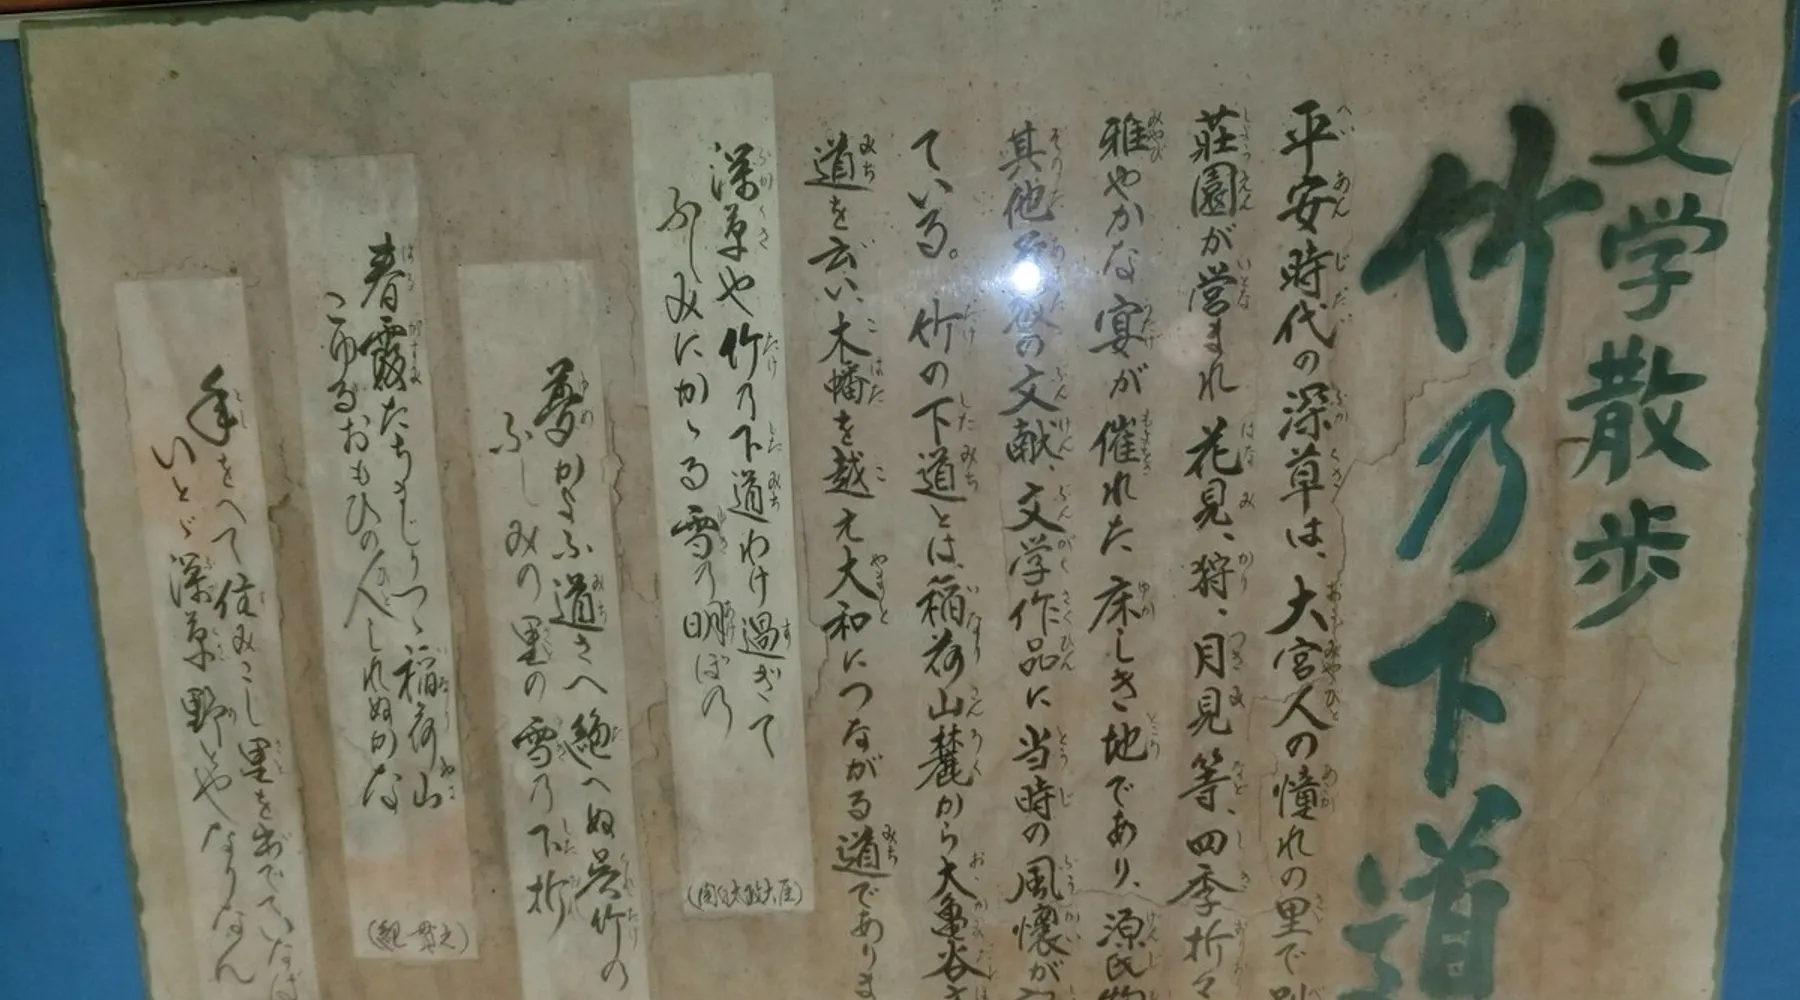 文学散歩
竹乃下道
平安時代の深草は、大宮人の憧れの里で別
荘園が営まれ花見、狩、月見等、四季折々
雅やかな宴が催れた床しき地であり、源氏物
其他の文献、文学作品に当時の風懐が
ている。竹の下道とは、稲荷山麓から大亀谷
道を云い、木幡を越え大和につながる道でありま
深草や竹乃下道わけ過ぎて
ふしみにかゝる雪乃明ぼの
(関白太政大臣)
夢かよふ道さへ絶へぬ呉竹の
ふしみの里の雪乃下折
春霞たちまじりつゝ稲荷山
こゆるおもひの人しれぬかな
(紀一貫之)
年をへて住みこし里を出でていなば
いとゞ深草野とやなりなん